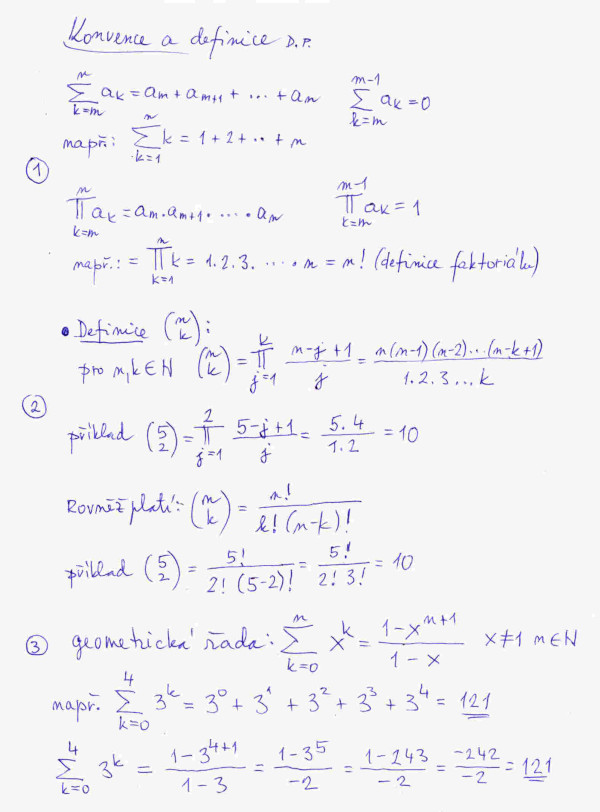 Konvence a definice D.P.
∑_{k=m}^{n} a_k = a_m + a_{m+1} + ··· + a_n    ∑_{k=m}^{m-1} a_k = 0
např: ∑_{k=1}^{n} k = 1 + 2 + ·· + n
①
∏_{k=m}^{n} a_k = a_m · a_{m+1} · ··· · a_n    ∏_{k=m}^{m-1} a_k = 1
např.: = ∏_{k=1}^{n} k = 1.2.3. ··· · n = n! (definice faktoriálu)
• Definice (n k):
pro n,k ∈ N (n k) = ∏_{j=1}^{k} (n-j+1)/j = n(n-1)(n-2)...(n-k+1) / 1.2.3...k
②
příklad (5 2) = ∏_{j=1}^{2} (5-j+1)/j = 5.4/1.2 = 10
Rovněž platí: (n k) = n! / k!(n-k)!
příklad (5 2) = 5! / 2!(5-2)! = 5! / 2! 3! = 10
③ geometrická řada: ∑_{k=0}^{n} x^k = (1-x^{n+1}) / (1-x)    x≠1 n∈N
např. ∑_{k=0}^{4} 3^k = 3^0 + 3^1 + 3^2 + 3^3 + 3^4 = 121
∑_{k=0}^{4} 3^k = (1-3^{4+1}) / (1-3) = (1-3^5) / -2 = (1-243) / -2 = -242 / -2 = 121